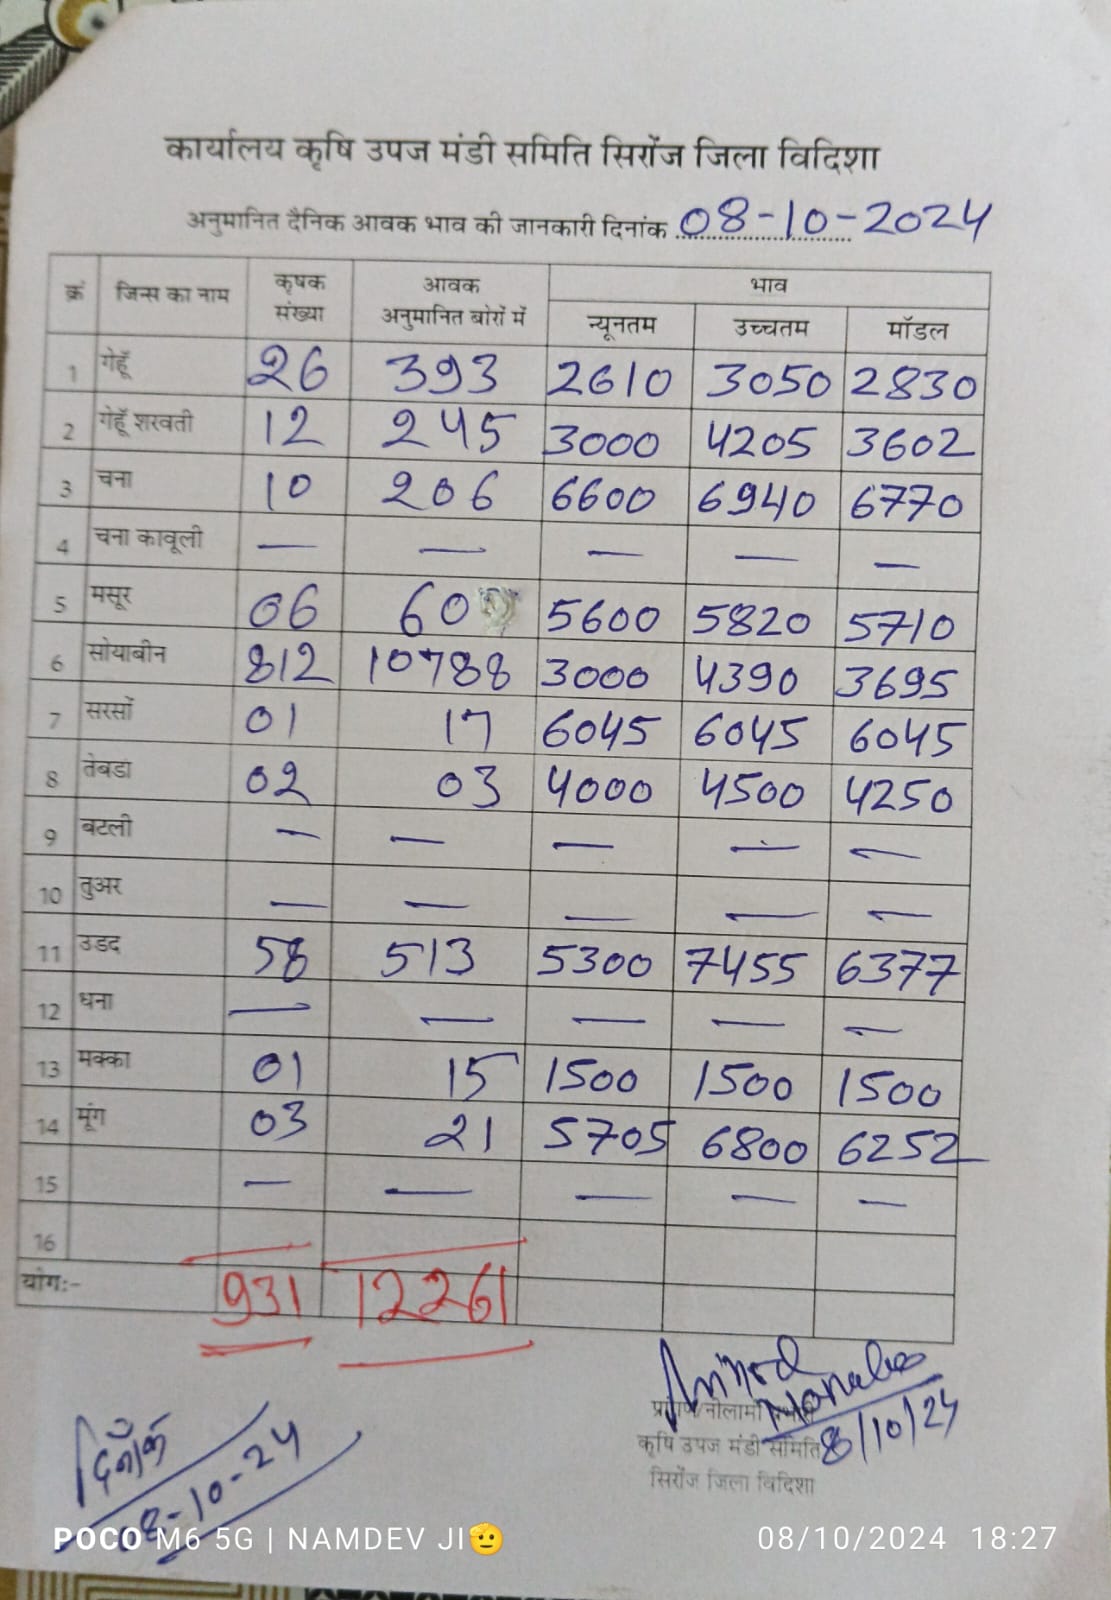 कार्यालय कृषि उपज मंडी समिति सिरोंज जिला विदिशा
अनुमानित दैनिक आवक भाव की जानकारी दिनांक 08-10-2024
क्रं जिन्स का नाम कृषक संख्या आवक अनुमानित बोरों में भाव
न्यूनतम उच्चतम मॉडल
1 गेहूँ 26 393 2610 3050 2830
2 गेहूँ शरवती 12 245 3000 4205 3602
3 चना 10 206 6600 6940 6770
4 चना कावूली — — — — —
5 मसूर 06 60 5600 5820 5710
6 सोयाबीन 812 10788 3000 4390 3695
7 सरसों 01 17 6045 6045 6045
8 तेबडा 02 03 4000 4500 4250
9 बटली — — — — —
10 तुअर — — — — —
11 उडद 58 513 5300 7455 6377
12 धना — — — — —
13 मक्का 01 15 1500 1500 1500
14 मूंग 03 21 5705 6800 6252
15 — — — — —
16
योगः- 931 12261
प्रांगण/नीलामी
कृषि उपज मंडी समिति 8/10/24
सिरोंज जिला विदिशा
दिनाँक
08-10-24
POCO M6 5G | NAMDEV JI🫡
08/10/2024 18:27